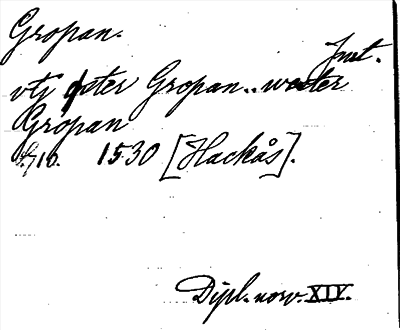 Gropan.
Jmt.
vtj øster Gropan.. wester
Gropan
s. 710. 1530 [Hackås].
Dipl. norv. XIV.